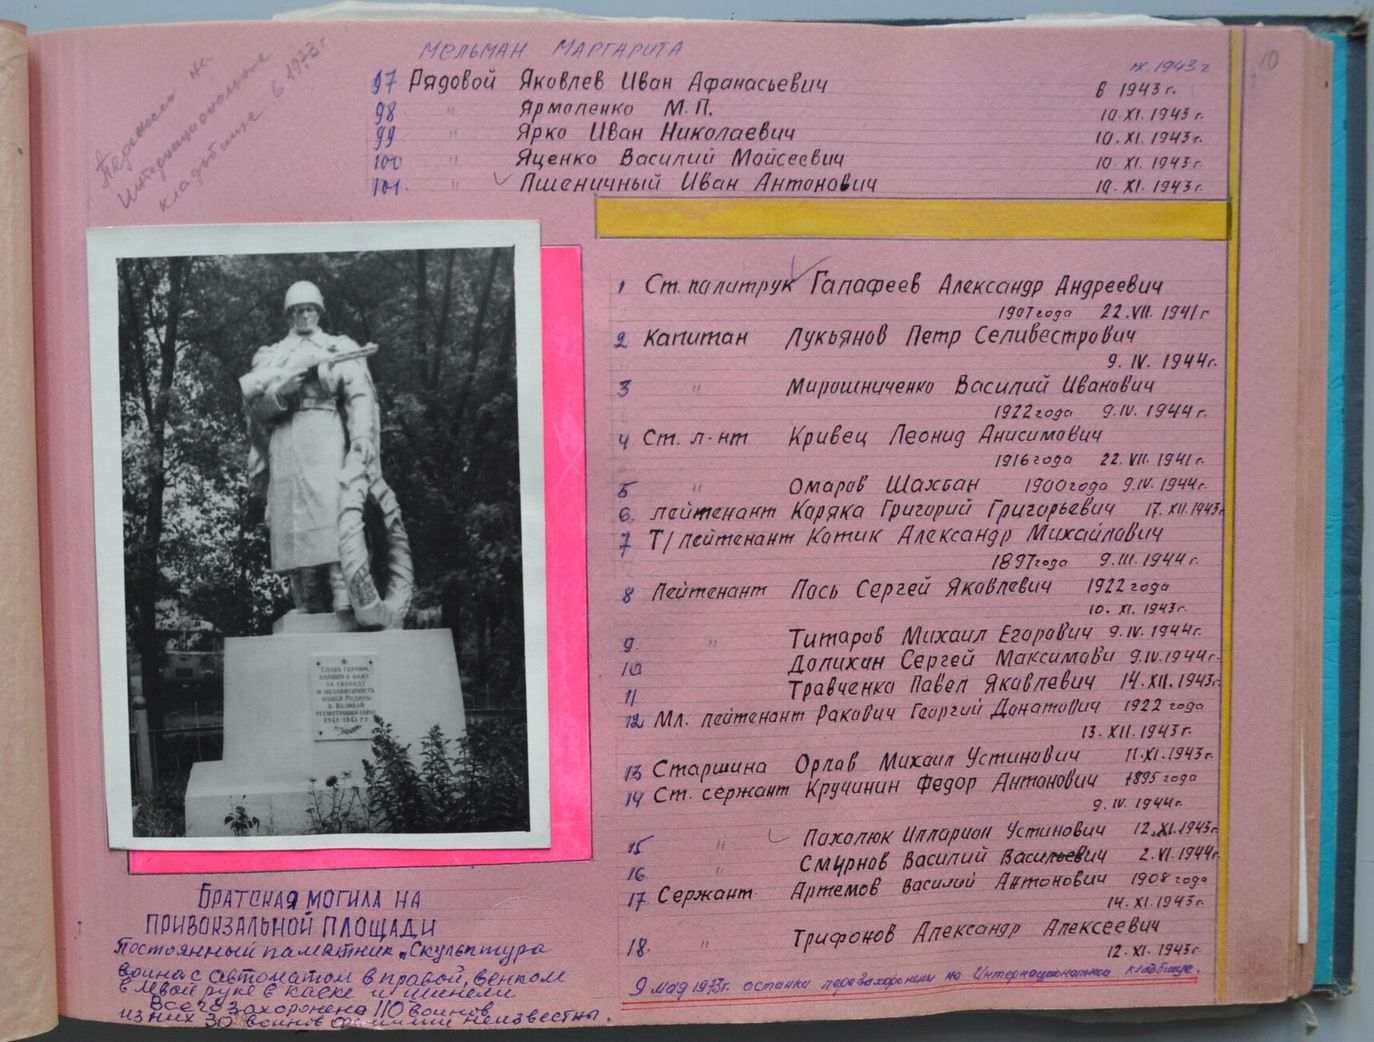 Перенесен на
Интернациональное
кладбище в 1973г
10
МЕЛЬМАН МАРГАРИТА
IX. 1943г
97 Рядовой Яковлев Иван Афанасьевич в 1943г.
98 " Ярмоленко М.П. 10.XI. 1943г.
99 " Ярко Иван Николаевич 10.XI. 1943г.
100 " Яценко Василий Мойсеевич 10.XI. 1943г.
101. " Пшеничный Иван Антонович 10.XI. 1943г.
1 Ст. палитрук Гапафеев Александр Андреевич
1907года 22.VII. 1941г
2 Капитан Лукьянов Петр Селивестрович
9.IV. 1944г.
3 " Мирошниченко Василий Иванович
1922года 9.IV. 1944г.
4 Ст. л-нт Кривец Леонид Анисимович
1916года 22.VII. 1941г.
5 " Омаров Шахбан 1900года 9.IV. 1944г.
6. лейтенант Коряка Григорий Григорьевич 17.XII.1943г
7 Т/лейтенант Котик Александр Михайлович
1897года 9.III. 1944г.
8 Лейтенант Лось Сергей Яковлевич 1922года
10.XI. 1943г.
9. " Титаров Михаил Егорович 9.IV. 1944г.
10 Долихан Сергей Максимови 9.IV.1944г.
11 Травченко Павел Яковлевич 14.XII.1943г.
12. Мл. лейтенант Ракович Георгий Донатович 1922 года
13.XII. 1943г.
13 Старшина Орлов Михаил Устинович 11.XI.1943г.
14 Ст. сержант Кручинин Федор Антонович 1895года
9.IV. 1944г.
15 " Пахолюк Илларион Устинович 12.XI.1943г.
16. " Смурнов Василий Васильевич 2.VI.1944г.
17 Сержант Артемов Василий Антонович 1908года
14.XI.1943г.
18. " Трифонов Александр Алексеевич
12.XI.1943г.
9 мая 1973г. останки перезахоронены на Интернациональном кладбище.
СЛАВА ГЕРОЯМ,
ПАВШИМ В БОЯХ
ЗА СВОБОДУ
И НЕЗАВИСИМОСТЬ
НАШЕЙ РОДИНЫ
В ВЕЛИКОЙ
ОТЕЧЕСТВЕННОЙ ВОЙНЕ
1941-1945 г.г.
БРАТСКАЯ МОГИЛА НА
ПРИВОКЗАЛЬНОЙ ПЛОЩАДИ
Постоянный памятник "Скульптура
воина с автоматом в правой, венком
в левой руке в каске и шинели
Всего захоронено 110 воинов
из них 30 воинов фамилии неизвестны.